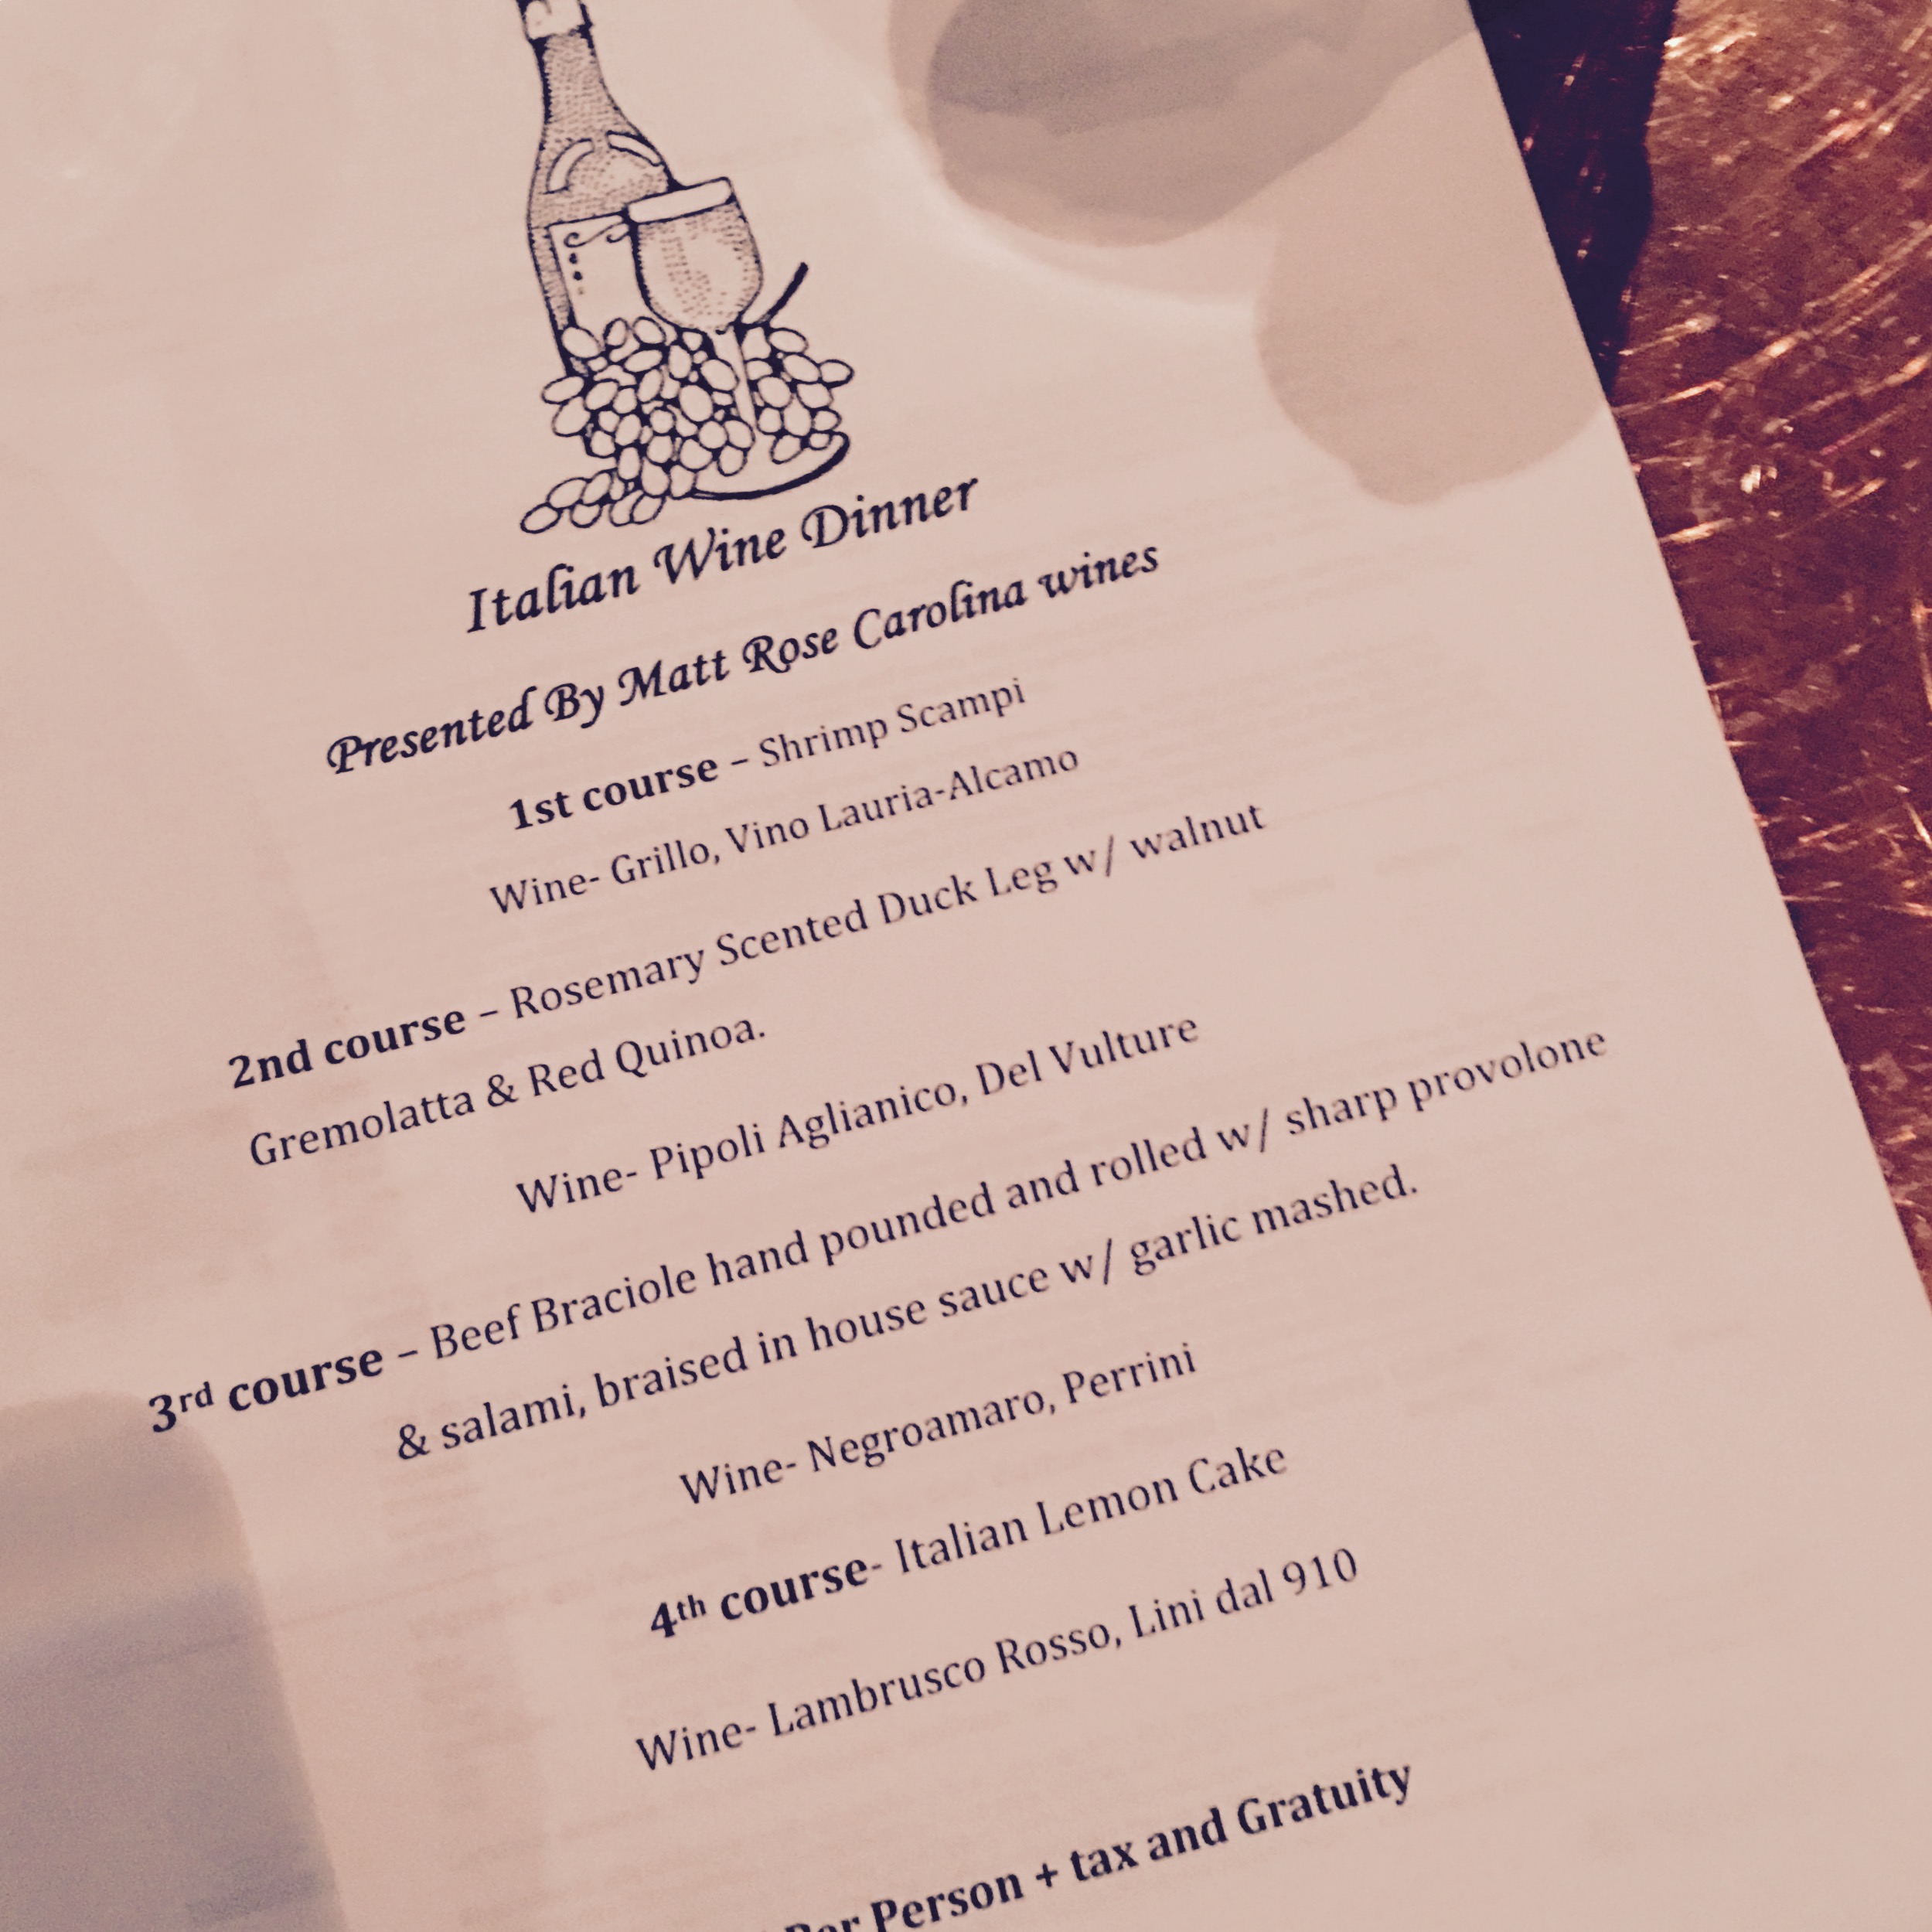 Italian Wine Dinner
Presented By Matt Rose Carolina wines
1st course – Shrimp Scampi
Wine- Grillo, Vino Lauria-Alcamo
2nd course – Rosemary Scented Duck Leg w/ walnut
Gremolatta & Red Quinoa.
Wine- Pipoli Aglianico, Del Vulture
3rd course – Beef Braciole hand pounded and rolled w/ sharp provolone
& salami, braised in house sauce w/ garlic mashed.
Wine- Negroamaro, Perrini
4th course- Italian Lemon Cake
Wine- Lambrusco Rosso, Lini dal 910
Per Person + tax and Gratuity